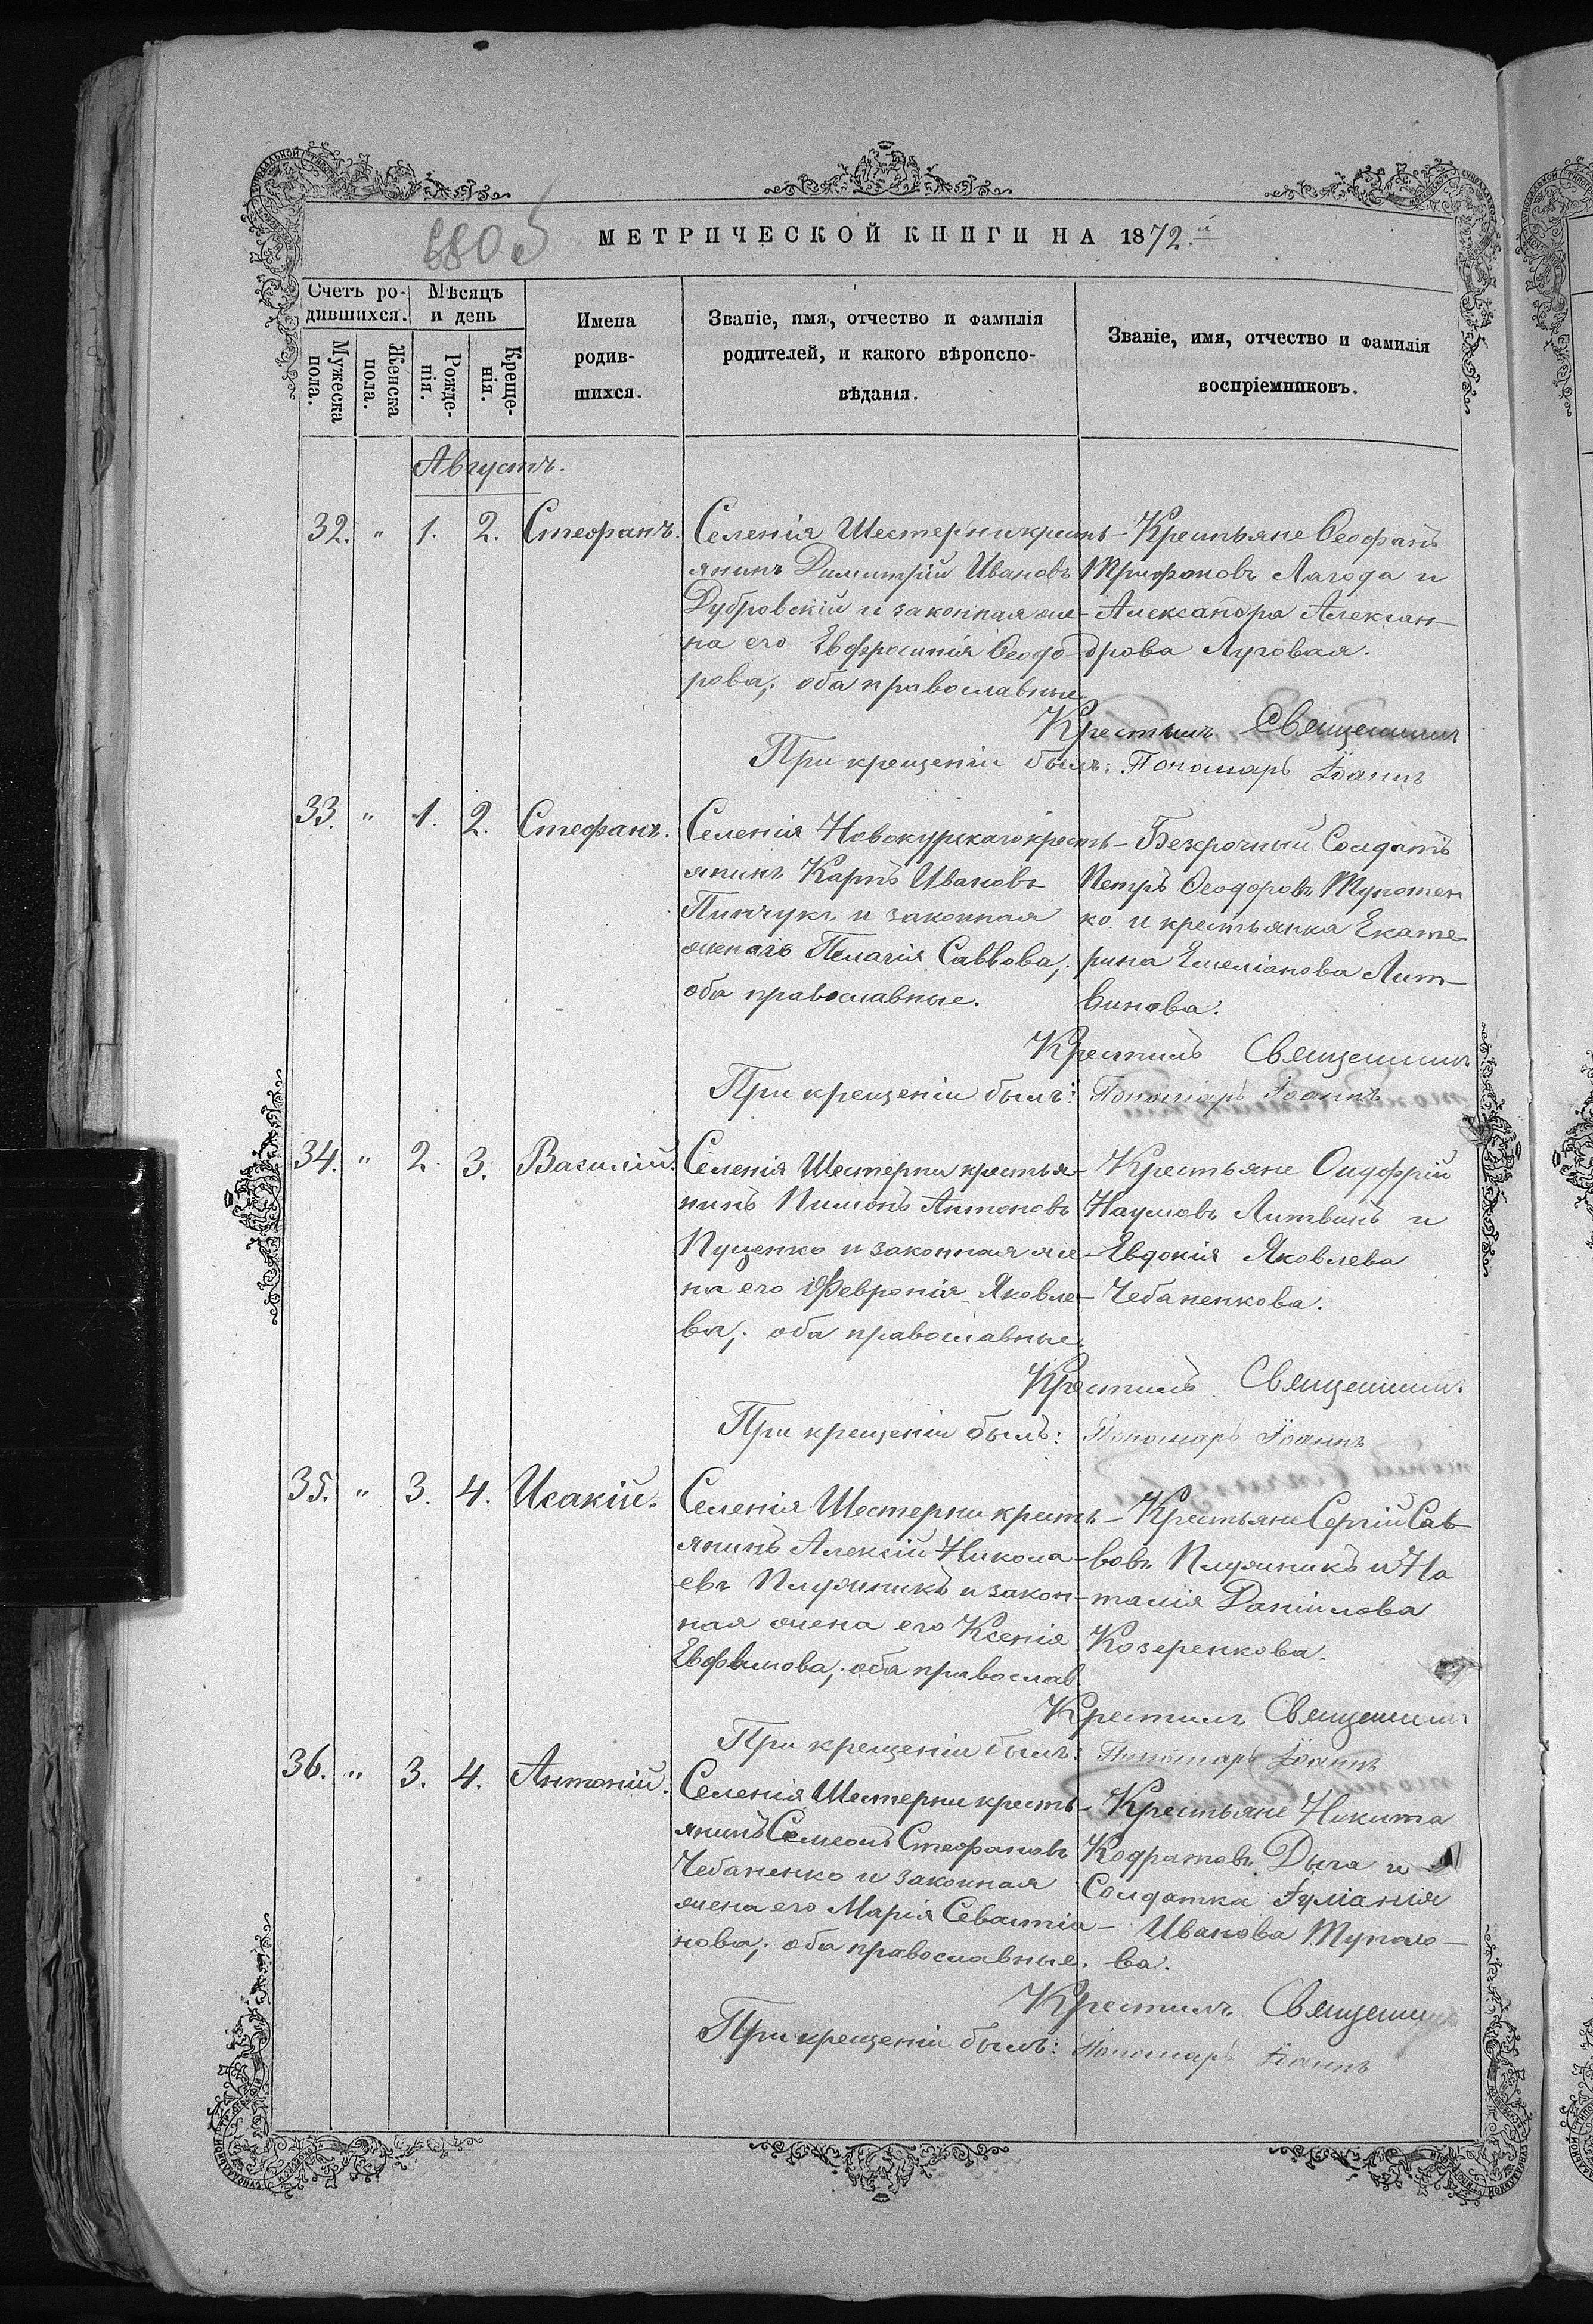 680 об
МЕТРИЧЕСКОЙ КНИГИ НА 1872.й
Счетъ ро-
дившихся.
Мѣсяцъ
и день
Мужеска
пола.
Женска
пола.
Рожде-
нія.
Креще-
нія.
Имена
родив-
шихся.
Званіе, имя, отчество и фамилія
родителей, и какого вѣроиспо-
вѣданія.
Званіе, имя, отчество и фамилія
воспріемниковъ.
Августъ.
32. " 1. 2. Стефанъ.
Селенія Шестерни кресть-
янинъ Димитрій Ивановъ
Дубровскій и законная же-
на его Евфросинія Ѳеодо-
рова; оба православные.
Крестьяне Ѳеофанъ
Трифоновъ Лагода и
Александра Алексан-
дрова Луговая.
Крестилъ Священникъ
При крещеніи былъ: Пономарь Іоаннъ
33. " 1. 2. Стефанъ.
Селенія Новокурскаго кресть-
янинъ Карпъ Ивановъ
Пинчукъ и законная
жена его Пелагія Саввова;
оба православные.
Безсрочный Солдатъ
Петръ Ѳеодоровъ Тупотен
ко и крестьянка Екате-
рина Емеліанова Лит-
винова.
Крестилъ Священникъ
При крещеніи былъ: Пономарь Іоаннъ
34. " 2. 3. Василій.
Селенія Шестерни крестья-
нинъ Пимонъ Антоновъ
Пуценко и законная же-
на его Февронія Яковле-
ва; оба православные.
Крестьяне Онуфрій
Наумовъ Литвинъ и
Евдокія Яковлева
Чебаненкова.
Крестилъ Священникъ
При крещеніи былъ: Пономарь Іоаннъ
35. " 3. 4. Исакій.
Селенія Шестерни кресть-
янинъ Алексій Никола-
евъ Плужникъ и закон-
ная жена его Ксенія
Евфимова; оба православ
Крестьяне Сергій Сав-
вовъ Плужникъ и На
талія Даніилова
Козеренкова.
Крестилъ Священникъ
При крещеніи былъ: Пономарь Іоаннъ
36. " 3. 4. Антоній.
Селенія Шестерни кресть-
янинъ Симеонъ Стефановъ
Чебаненко и законная
жена его Марія Севастіа-
нова; оба православные.
Крестьяне Никита
Кодратовъ Дыга и
Солдатка Іуліанія
Иванова Тупало-
ва.
Крестилъ Священникъ
При крещеніи былъ: Пономарь Іоаннъ